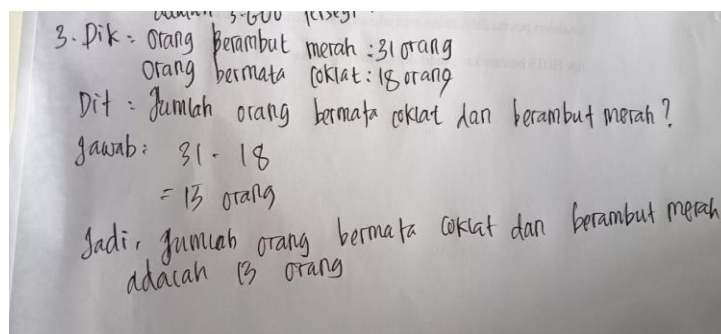 dalam 3.600 persegi
3. Dik : Orang Berambut merah : 31 orang
Orang bermata Coklat : 18 orang
Dit : Jumlah orang bermata coklat dan berambut merah ?
Jawab : 31 - 18
= 13 orang
Jadi, Jumlah orang bermata coklat dan berambut merah
adalah 13 orang